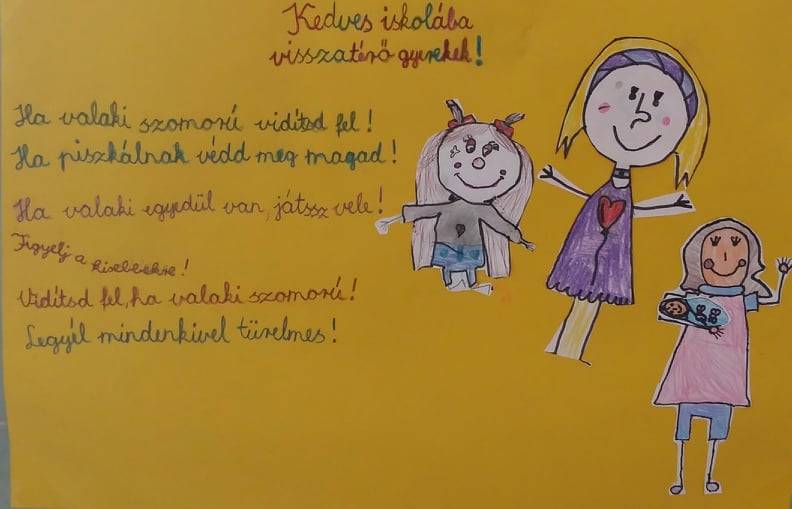 Kedves iskolába
visszatérő gyerekek!
Ha valaki szomorú vidítsd fel!
Ha piszkálnak védd meg magad!
Ha valaki egyedül van, játssz vele!
Figyelj a kisebbekre!
Vidítsd fel, ha valaki szomorú!
Legyél mindenkivel türelmes!